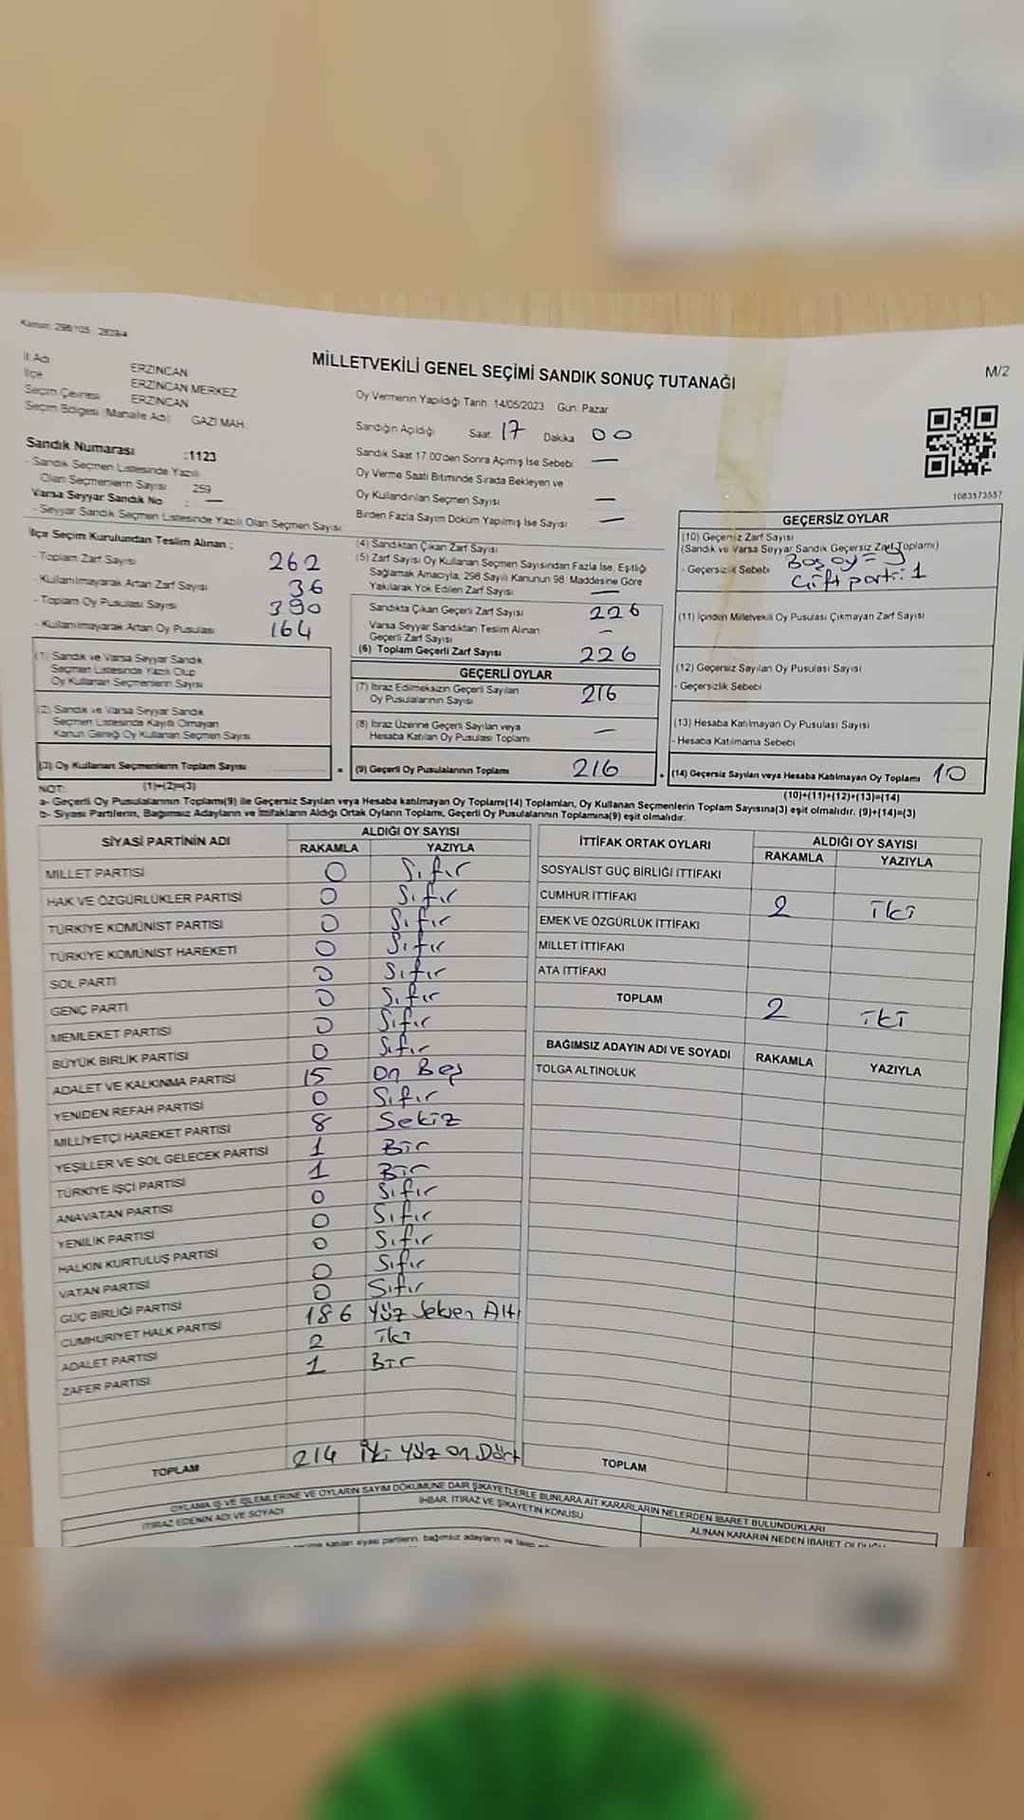 Kanun: 298/105 2839/4
MİLLETVEKİLİ GENEL SEÇİMİ SANDIK SONUÇ TUTANAĞI
M/2
İl Adı ERZİNCAN
İlçe ERZİNCAN MERKEZ
Seçim Çevresi ERZİNCAN
Seçim Bölgesi (Mahalle Adı) GAZİ MAH.
Sandık Numarası :1123
- Sandık Seçmen Listesinde Yazılı
Olan Seçmenlerin Sayısı 259
Varsa Seyyar Sandık No : —
- Seyyar Sandık Seçmen Listesinde Yazılı Olan Seçmen Sayısı
Oy Vermenin Yapıldığı Tarih: 14/05/2023 Gün: Pazar
Sandığın Açıldığı Saat 17 Dakika 00
Sandık Saat 17.00'den Sonra Açılmış İse Sebebi —
Oy Verme Saati Bitiminde Sırada Bekleyen ve
Oy Kullandırılan Seçmen Sayısı —
Birden Fazla Sayım Döküm Yapılmış İse Sayısı —
1083573557
İlçe Seçim Kurulundan Teslim Alınan :
- Toplam Zarf Sayısı 262
- Kullanılmayarak Artan Zarf Sayısı 36
- Toplam Oy Pusulası Sayısı 390
- Kullanılmayarak Artan Oy Pusulası 164
(1) Sandık ve Varsa Seyyar Sandık
Seçmen Listesinde Yazılı Olup
Oy Kullanan Seçmenlerin Sayısı
(2) Sandık ve Varsa Seyyar Sandık
Seçmen Listesinde Kayıtlı Olmayan
Kanun Gereği Oy Kullanan Seçmen Sayısı
(3) Oy Kullanan Seçmenlerin Toplam Sayısı
(1)+(2)=(3)
(4) Sandıktan Çıkan Zarf Sayısı
(5) Zarf Sayısı Oy Kullanan Seçmen Sayısından Fazla İse, Eşitliği
Sağlamak Amacıyla, 298 Sayılı Kanunun 98. Maddesine Göre
Yakılarak Yok Edilen Zarf Sayısı —
Sandıkta Çıkan Geçerli Zarf Sayısı 226
Varsa Seyyar Sandıktan Teslim Alınan
Geçerli Zarf Sayısı —
(6) Toplam Geçerli Zarf Sayısı 226
GEÇERLİ OYLAR
(7) İtiraz Edilmeksizin Geçerli Sayılan
Oy Pusulalarının Sayısı 216
(8) İtiraz Üzerine Geçerli Sayılan veya
Hesaba Katılan Oy Pusulası Toplamı —
(9) Geçerli Oy Pusulalarının Toplamı 216
GEÇERSİZ OYLAR
(10) Geçersiz Zarf Sayısı
(Sandık ve Varsa Seyyar Sandık Geçersiz Zarf Toplamı)
- Geçersizlik Sebebi Boş oy = 9
Çift parti: 1
(11) İçinden Milletvekili Oy Pusulası Çıkmayan Zarf Sayısı
(12) Geçersiz Sayılan Oy Pusulası Sayısı
- Geçersizlik Sebebi
(13) Hesaba Katılmayan Oy Pusulası Sayısı
- Hesaba Katılmama Sebebi
(14) Geçersiz Sayılan veya Hesaba Katılmayan Oy Toplamı 10
(10)+(11)+(12)+(13)=(14)
NOT:
a- Geçerli Oy Pusulalarının Toplamı(9) ile Geçersiz Sayılan veya Hesaba katılmayan Oy Toplamı(14) Toplamları, Oy Kullanan Seçmenlerin Toplam Sayısına(3) eşit olmalıdır. (9)+(14)=(3)
b- Siyasi Partilerin, Bağımsız Adayların ve İttifakların Aldığı Ortak Oyların Toplamı, Geçerli Oy Pusulalarının Toplamına(9) eşit olmalıdır.
SİYASİ PARTİNİN ADI ALDIĞI OY SAYISI
RAKAMLA YAZIYLA
MİLLET PARTİSİ 0 Sıfır
HAK VE ÖZGÜRLÜKLER PARTİSİ 0 Sıfır
TÜRKİYE KOMÜNİST PARTİSİ 0 Sıfır
TÜRKİYE KOMÜNİST HAREKETİ 0 Sıfır
SOL PARTİ 0 Sıfır
GENÇ PARTİ 0 Sıfır
MEMLEKET PARTİSİ 0 Sıfır
BÜYÜK BİRLİK PARTİSİ 0 Sıfır
ADALET VE KALKINMA PARTİSİ 15 On Beş
YENİDEN REFAH PARTİSİ 0 Sıfır
MİLLİYETÇİ HAREKET PARTİSİ 8 Sekiz
YEŞİLLER VE SOL GELECEK PARTİSİ 1 Bir
TÜRKİYE İŞÇİ PARTİSİ 1 Bir
ANAVATAN PARTİSİ 0 Sıfır
YENİLİK PARTİSİ 0 Sıfır
HALKIN KURTULUŞ PARTİSİ 0 Sıfır
VATAN PARTİSİ 0 Sıfır
GÜÇ BİRLİĞİ PARTİSİ 0 Sıfır
CUMHURİYET HALK PARTİSİ 186 Yüz Seksen Altı
ADALET PARTİSİ 2 iki
ZAFER PARTİSİ 1 Bir
TOPLAM 214 İki Yüz on Dört
İTTİFAK ORTAK OYLARI ALDIĞI OY SAYISI
RAKAMLA YAZIYLA
SOSYALİST GÜÇ BİRLİĞİ İTTİFAKI
CUMHUR İTTİFAKI 2 iki
EMEK VE ÖZGÜRLÜK İTTİFAKI
MİLLET İTTİFAKI
ATA İTTİFAKI
TOPLAM 2 iki
BAĞIMSIZ ADAYIN ADI VE SOYADI RAKAMLA YAZIYLA
TOLGA ALTINOLUK
TOPLAM
OYLAMA İŞ VE İŞLEMLERİNE VE OYLARIN SAYIM DÖKÜMÜNE DAİR ŞİKAYETLERLE BUNLARA AİT KARARLARIN NELERDEN İBARET BULUNDUKLARI
İTİRAZ EDENİN ADI VE SOYADI İHBAR, İTİRAZ VE ŞİKAYETİN KONUSU ALINAN KARARIN NEDEN İBARET OLDUĞU
katılan siyasi partilerin, bağımsız adayların ve